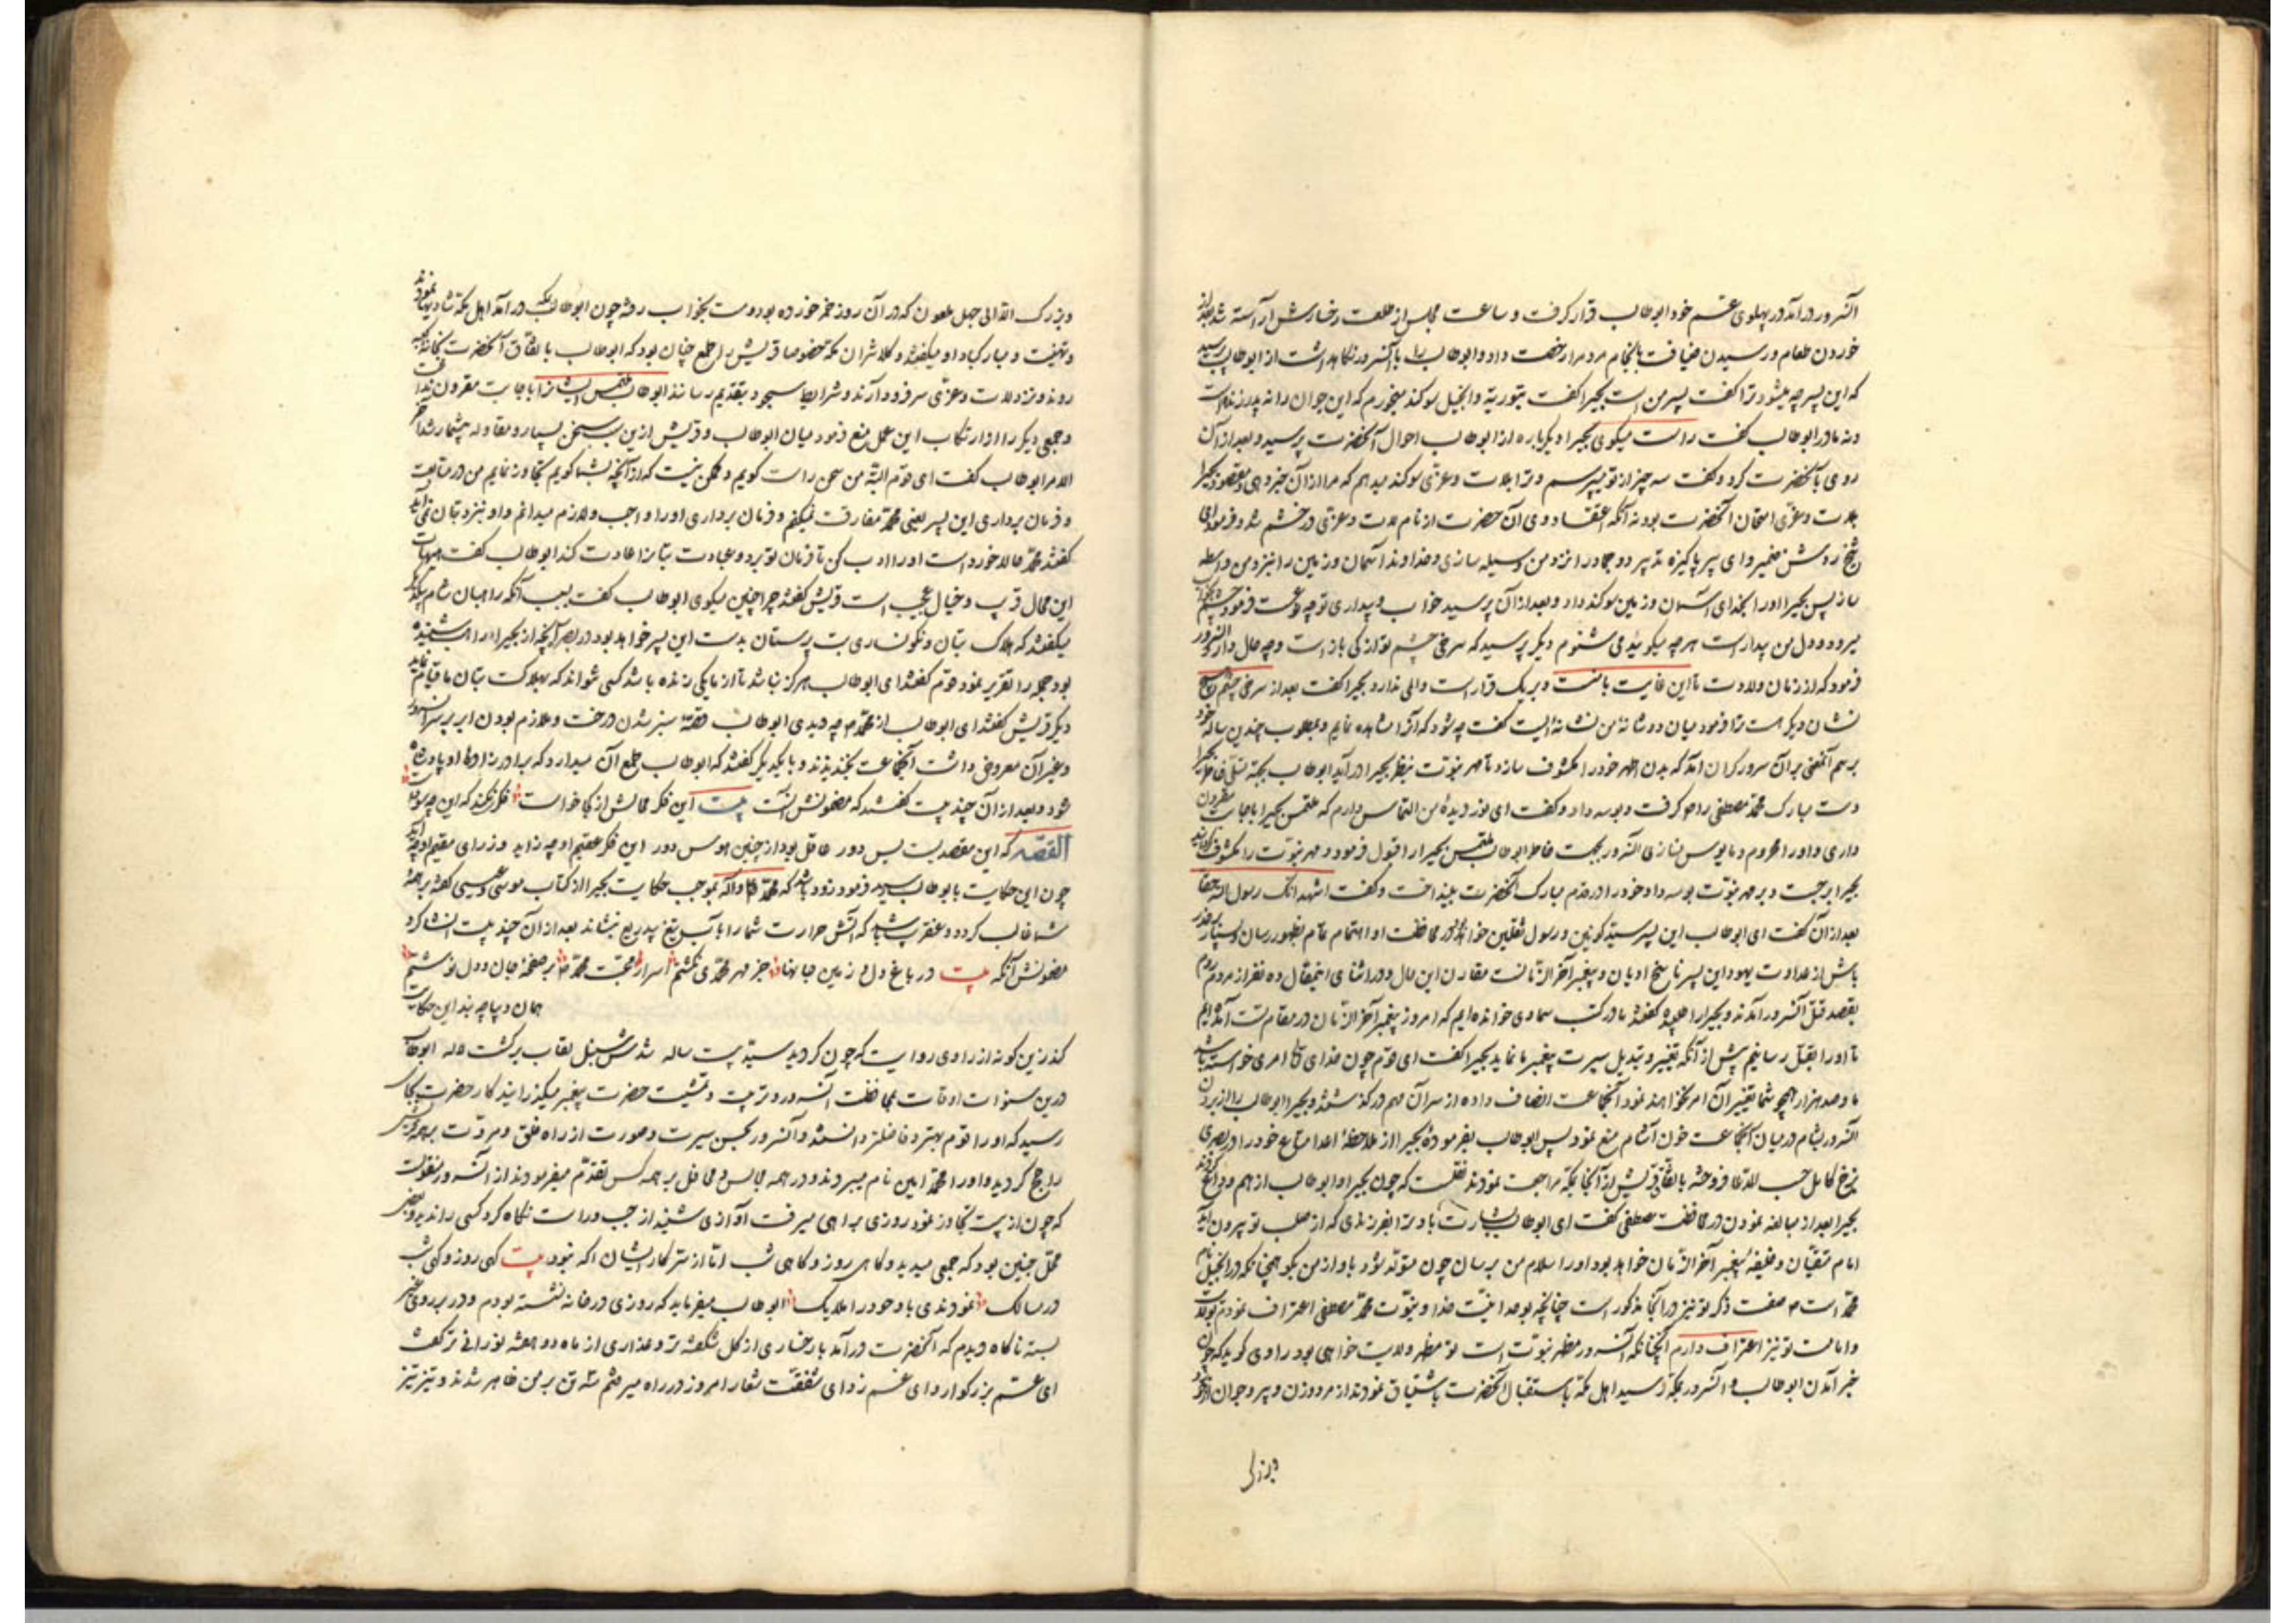 آنسرور درآمد در پهلوی عم خود ابوطالب قرار گرفت و ساعت مجلس از طلعت رخسارش آراسته شد بعد از
خوردن طعام و رسیدن ضیافت بانجام مردم را رخصت داد و ابوطالب را با آنسرور نگاه داشت از ابوطالب پرسید
که این پسر چه میشود ترا گفت پسر من است بحیرا گفت بتوریة و انجیل سوکند میخورم که این جوان را نه پدر زنده است
و نه مادر ابوطالب گفت راست میگوی بحیرا دیگرباره از ابوطالب احوال آنحضرت پرسید و بعد از آن
روی بآنحضرت کرد و گفت سه چیز از تو میپرسم و ترا بلات و عزی سوکند میدهم که مرا از آن خبر دهی و مقصود بحیرا
بلات و عزی امتحان آنحضرت بود نه آنکه اعتقاد وی آن حضرت از نام لات و عزی در خشم شد و فرمود ای
شیخ روشن ضمیر و ای پیر پاکیزه تدبیر دو جماد را نزد من وسیله سازی و خداوند آسمان و زمین را نیز نزد من واسطه
ساز پس بحیرا او را بخدای آسمان و زمین سوکند داد و بعد از آن پرسید خواب و بیداری تو چه نوعست فرمود چشم
میرود و دل من بیدار است هر چه میکویند می شنوم دیگر پرسید که سرخی چشم تو از کی باز است و چه حال دارد آنسرور
فرمود که از زمان ولادت تا این غایت با منست و بر یک قرار است و المی ندارد بحیرا گفت بعد از سرخی چشم
نشان دیگر هست ترا فرمود میان دو شانه من نشانه ایست گفت چه شود که آنرا مشاهده نمایم و مطلوب چندین ساله خود
برسم آنمعنی بر آن سرور کران آمد که بدن اطهر خود را مکشوف سازد تا مهر نبوت بنظر بحیرا درآید ابوطالب بجهة تسلی خاطر بحیرا
دست مبارک محمد مصطفی را گرفت و بوسه داد و گفت ای نور دیدۀ من التماس دارم که ملتمس بحیرا باجابت مقرون
داری و او را محروم و مایوس نسازی آنسرور بجهت خاطر ابوطالب ملتمس بحیرا را قبول فرمود و مهر نبوت را مکشوف گردانید
بحیرا برجست و بر مهر نبوت بوسه داد و خود را در قدم مبارک آنحضرت بینداخت و گفت اشهد انک رسول الله حقا
بعد از آن گفت ای ابوطالب این پسر سید کونین و رسول ثقلین خواهد بود در محافظت او اهتمام تمام بظهور رسان و بسیار بر حذر
باش از عداوت یهود این پسر ناسخ ادیان و پیغمبر آخر الزمانست مقارن این حال و در اثنای این مقال ده نفر از مردم روم
بقصد قتل آنسرور آمدند و بحیرا را طلبیده گفتند ما در کتب سماوی خوانده‌ایم که امروز پیغمبر آخر الزمان در مقام تست آمده‌ایم
تا او را بقتل رسانیم پیش از آنکه تغییر و تبدیل سیرت پیغمبر ما نماید بحیرا گفت ای قوم چون خدای تعالی امری خواسته باشد
ما و صد هزار همچو شما تغییر آن امر نخواهند نمود آنجماعت انصاف داده از سر آن مهم در گذشتند و بحیرا ابوطالب را از بردن
آنسرور بشام در میان آنجماعت خون آشام منع نمود پس ابوطالب بفرمودۀ بحیرا از ملاحظۀ اعدا متاع خود را در بصری
بنرخ کامل حسب المدعا فروخته باتفاق قریش از آنجا بمکه مراجعت نمودند نقلست که چون بحیرا و ابوطالب از هم وداع
بحیرا بعد از مبالغه نمودن در محافظت مصطفی گفت ای ابوطالب بشارت باد ترا بفرزندی که از صلب تو بیرون آید
امام متقیان و خلیفه پیغمبر آخر الزمان خواهد بود او را سلام من برسان چون متولد شود و باو از من بگو همچنانکه در انجیل نام
محمد است صفت ذکر تو نیز در آنجا مذکور است چنانچه بوحدانیت خدا و نبوت محمد مصطفی اعتراف نمودم بولایت
و امامت تو نیز اعتراف دارم آنچنانکه آنسرور مظهر نبوت است تو مظهر ولایت خواهی بود راوی گوید که چون
خبر آمدن ابوطالب و آنسرور بمکه رسید اهل مکه باستقبال آنحضرت باشتیاق نمودند از مرد و زن و پیر و جوان
و بزرک
و بزرک الا ابی جهل ملعون که در آن روز خمر خورده بود و مست بخواب رفته چون ابوطالب بمکه درآمد اهل مکه شادیها نمودند
و تهنیت و مبارکباد او میگفتند و کلانتران مکه خصوصا قریش را طمع چنان بود که ابوطالب باتفاق آنحضرت بخانه کعبه
روند و نزد لات و عزی سر فرود آرند و شرایط سجود بتقدیم رسانند ابوطالب ملتمس ایشانرا باجابت مقرون نداشت
و جمعی دیگر را از ارتکاب این عمل منع فرمود میان ابوطالب و قریش ازین سبب سخن بسیار و مقاوله بیشمار شد آخر
الامر ابوطالب گفت ای قوم البته من سخن راست گویم و ممکن نیست که از آنچه بشما گویم تجاوز نمایم من در متابعت
و فرمان برداری این پسر یعنی محمد مفارقت نمیکنم و فرمان برداری او را واجب و لازم میدانم و او نیز نزد بتان نمی آید
گفتند محمد حالا خورد است او را ادب کن تا فرمان تو برد و عبادت بتانرا عادت کند ابوطالب گفت هیهات
این محال قریب و خیال عجیب است قریش گفتند چرا چنین میکوی ابوطالب گفت بسبب آنکه راهبان شام
میگفتند که هلاک بتان و نکونساری بت پرستان بدست این پسر خواهد بود در بصری آنچه از بحیرا راهب شنیده
بود همه را تقریر نمود قوم گفتند ای ابوطالب هرگز نباشد تا از ما یکی زنده باشد کسی نتواند که بهلاکت بتان ما قیام نماید
دیگر قریش گفتند ای ابوطالب از محمد چه دیدی ابوطالب قصۀ سبز شدن درخت و ملازم بودن ابر بر سر آنسرور
و غیر آن معروض داشت آنجماعت بخندیدند و با یکدیگر گفتند که ابوطالب طمع آن میدارد که برادرزاده او پادشاه
شود و بعد از آن چند بیت گفتند که مضمونش آنست بیت این فکر محالش از کجا خواست فکری نکند که این چه سوداست
القصه که این مقصد یست بس دور عاقل بود از چنین هوس دور این فکر عقیم او چه زاید وز رای سقیم او چه آید
چون این حکایت بابوطالب رسید فرمود زود باشد که محمد والله بموجب حکایت بحیرا از کتاب موسی و عیسی گفته بر همۀ
شما غالب گردد و عنقریب باشد که آتش حرارت شما را بآب تیغ بیدریغ بنشاند بعد از آن چند بیت انشا کرد
مضمونش آنکه بیت در باغ دل و زمین جانها جز مهر محمدی نکشتم اسرار محبت محمد بر صفحۀ جان و دل نوشتم
همان دیباچه بند این حکایت
کند زین گونه از راوی روایت که چون گردید سیدبیست ساله
درین سنوات اوقات بمحافظت آنسرور و تربیت و تمشیت حضرت پیغمبر میگذرانید کار حضرت بجای
رسید که او را قوم بهتر و فاضلتر دانستند و آنسرور بحسن سیرت و صورت از راه خلق و مروت بر همه قریش
راجح گردید و او را محمد امین نام میبردند و در همه مجالس و محافل بر همه کس تقدم میفرمودند از آنسرور منقولست
که چون از بیست تجاوز نمود روزی براهی میرفت آوازی شنید از چپ و راست نگاه کرد کسی را ندید و بعضی
محل چنین بود که جمعی میدید و گاهی روز و گاهی شب اما از سر کار ایشان آگه نبود بیت گهی روز و گهی شب
در سالک نمودندی باو خود را ملایک ابوطالب میفرماید که روزی در خانه نشسته بودم و در بروی غیر
بسته ناگاه دیدم که آنحضرت درآمد با رخساری از گل شکفته‌تر و عذاری از ماه دو هفته نورانی‌تر گفت
ای عم بزرگوار و ای غمزدای شفقت شعار امروز در راه میرفتم سه تن بر من ظاهر شدند و تیز تیز